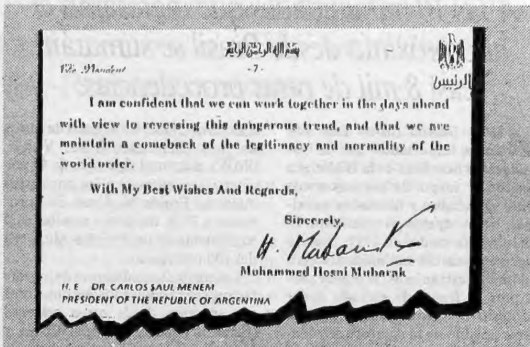 بسم الله الرحمن الرحيم
The President
-7-
الرئيس
I am confident that we can work together in the days ahead
with view to reversing this dangerous trend, and that we are
maintain a comeback of the legitimacy and normality of the
world order.
With My Best Wishes And Regards,
Sincerely,
H. Mubarak
Muhammed Hosni Mubarak
H. E DR. CARLOS SAUL MENEM
PRESIDENT OF THE REPUBLIC OF ARGENTINA